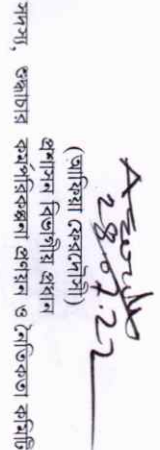 28.07.22
(আফিয়া ফেরদৌসী)
প্রশাসন বিভাগীয় প্রধান
সদস্য, শুদ্ধাচার কর্মপরিকল্পনা প্রণয়ন ও নৈতিকতা কমিটি